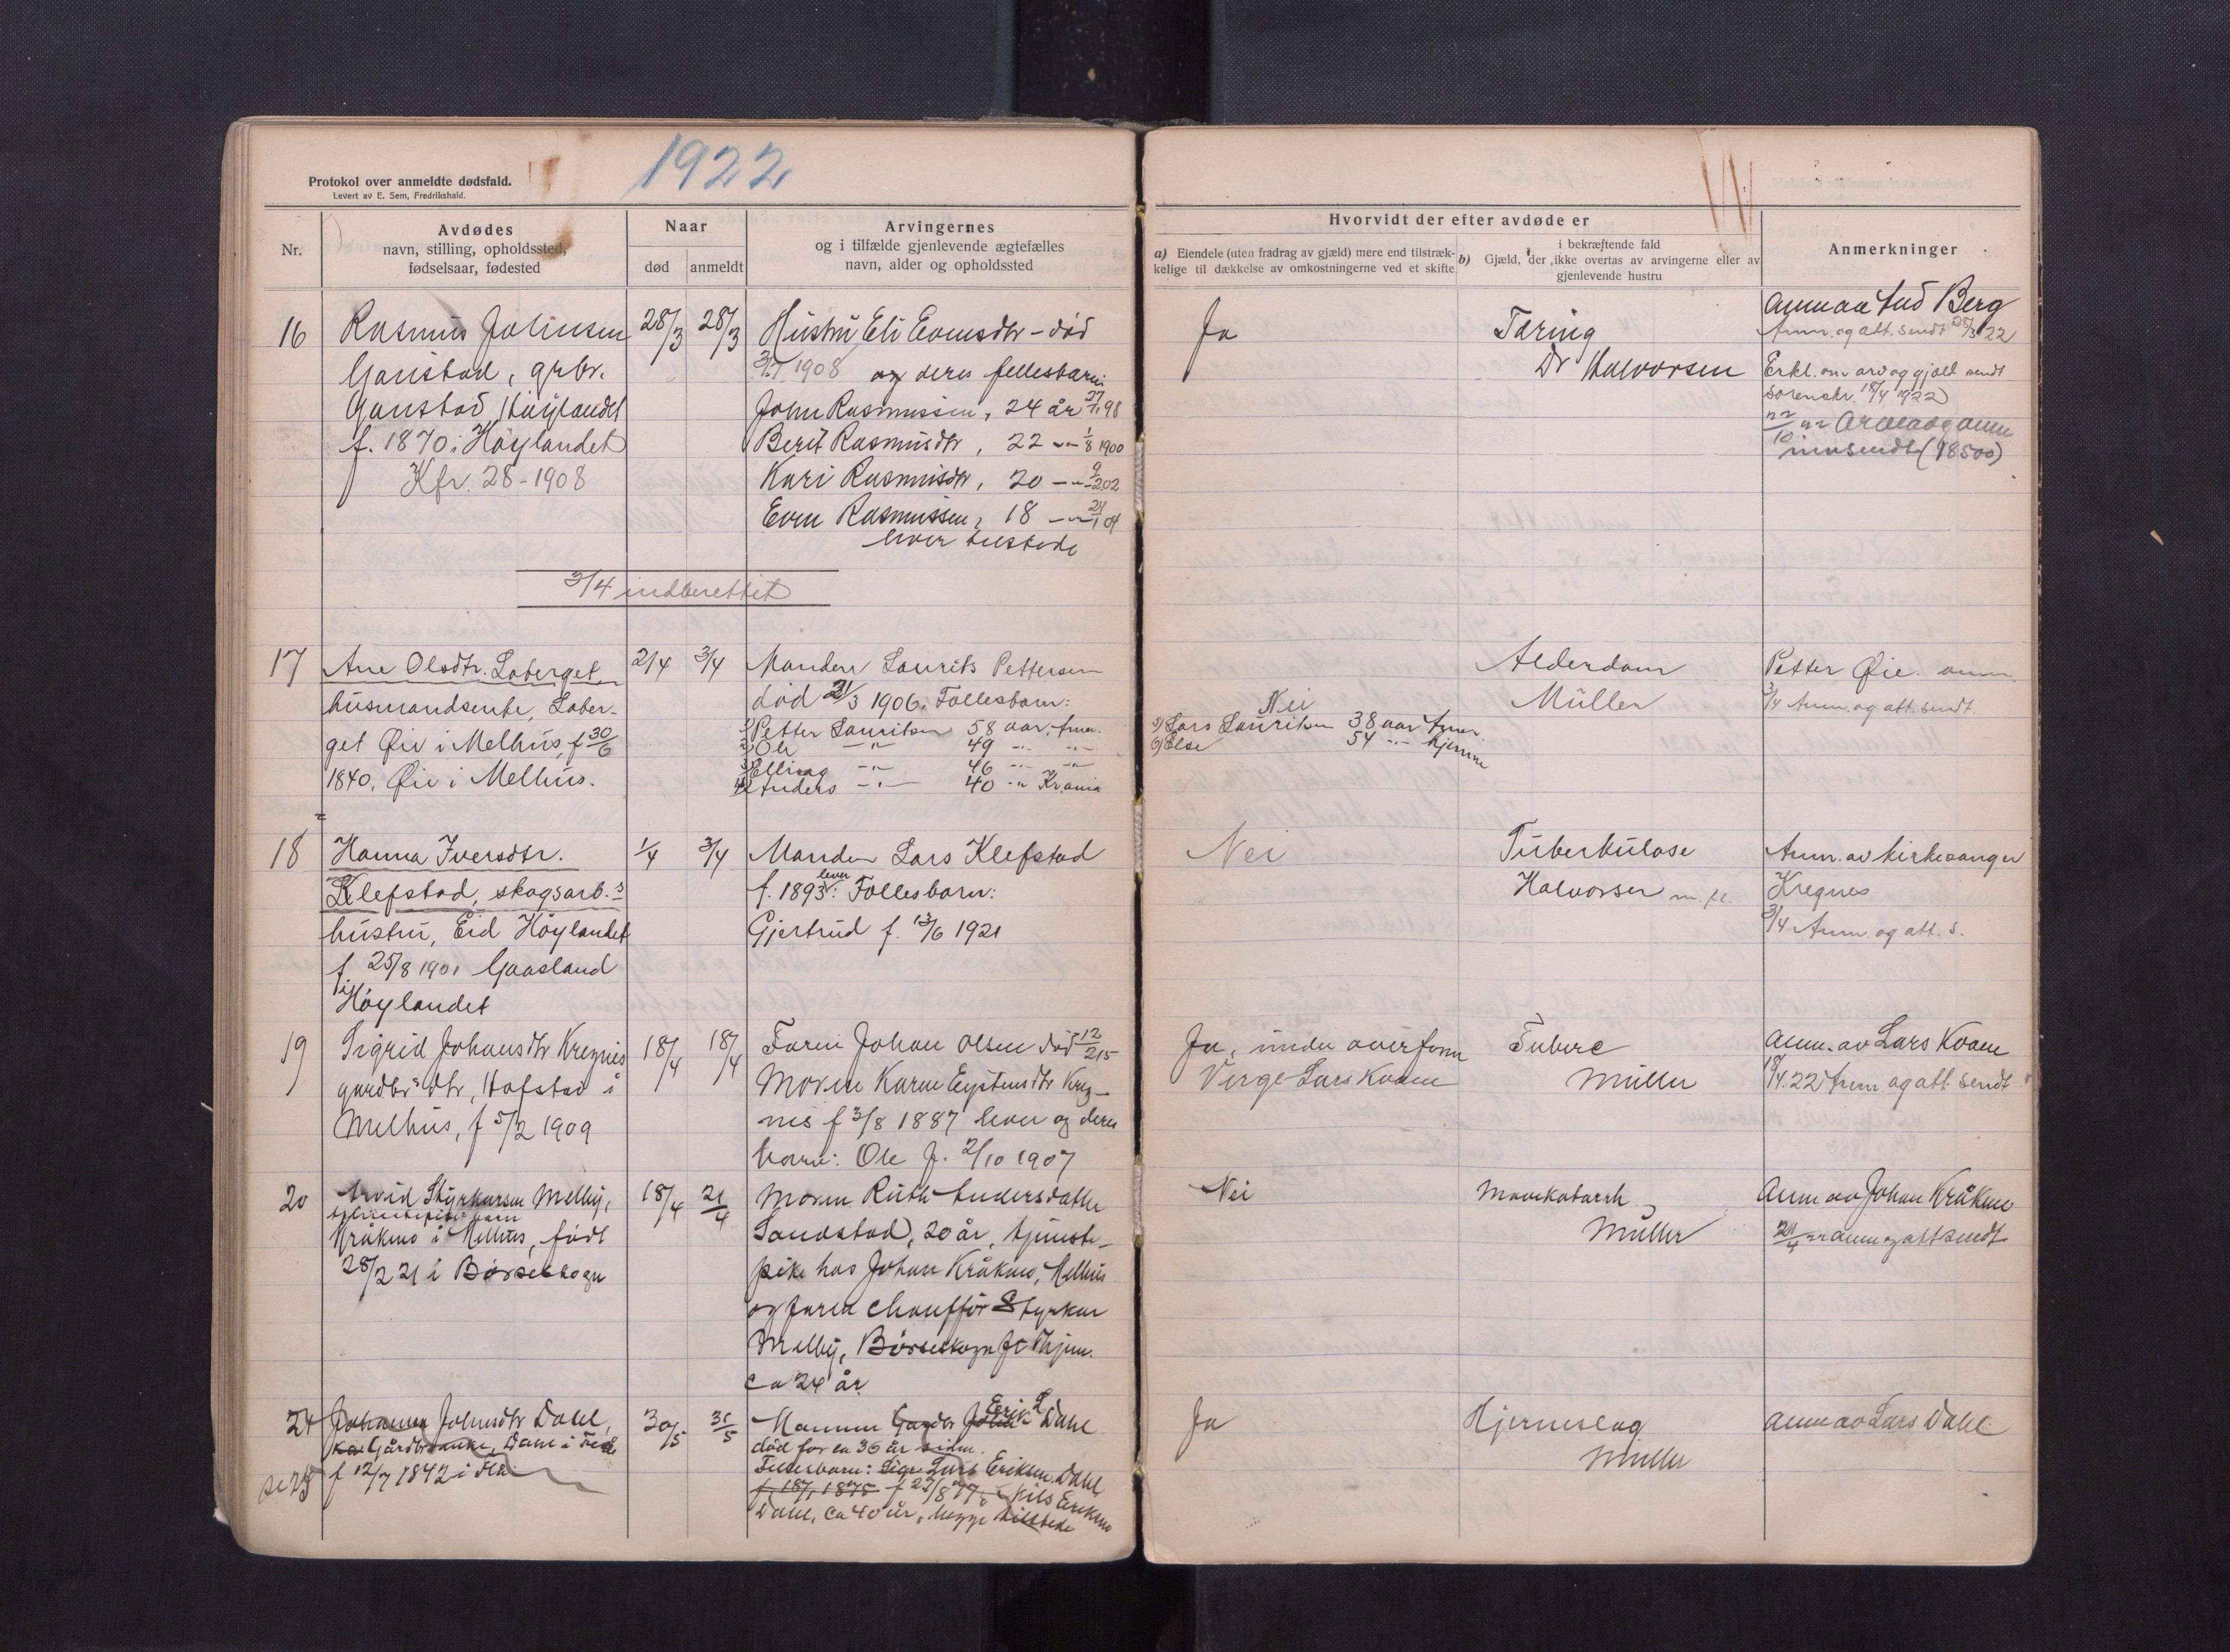 Protokol over anmeldte dødsfald.
Levert av E. Sem, Fredrikshald.
1922
Nr.
Avdødes
navn, stilling, opholdssted,
fødselsaar, fødested
Naar
død
anmeldt
Arvingernes
og i tilfælde gjenlevende ægtefælles
navn, alder og opholdssted
Hvorvidt der efter avdøde er
a) Eiendele (uten fradrag av gjæld) mere end tilstræk-
kelige til dækkelse av omkostningerne ved et skifte
b) Gjæld, der ikke overtas av arvingerne eller av
i bekræftende fald
gjenlevende hustru
Anmerkninger
16
Rasmus Johnsen
Ganstad, grbr.
Ganstad, Höylandet
f. 1870 i Höylandet
Kfr. 28-1908
28/3
28/3
Hustru Eli Evensdtr - död
1908 og deres fellesbarn:
John Rasmussen, 24 år 98
Berit Rasmusdtr, 22 -"- 1/8 1900
Kari Rasmusdtr, 20 -"- 02
Even Rasmussen, 18 -"- 04
lever tilstede
Ja
Tæring
Dr Halvorsen
Berg
Anm. og att. sendt 22
Erkl. om arv og gjæld sendt
sorenskr. 18/4 1922
22/10
innsendt (98500)
3/4 indberettet
17
Ane Olsdtr. Loberget
husmandsenke, Lober-
get Øie i Melhus, f 30/6
1840, Øie i Melhus.
2/4
3/4
Manden Laurits Pettersen
död 21/3 1906. Fællesbarn:
1) Petter Lauritsen 58 aar, Amer.
2) Ole -"- 49 -"- -"-
3) -"- 46 -"- -"-
4) Anders -"- 40 -"- Kr.ania
Nei
5) Lars Lauritsen 38 aar Amer.
6) Else 54 -"- hjemme
Alderdom
Müller
Petter Øie anm.
3/4 Anm. og att. sendt.
18
Hanna Iversdtr.
Klefstad, skogsarb.s
hustru, Eid Höylandet
f. 25/8 1901 Gaasland
i Höylandet
1/4
3/4
Manden Lars Klefstad
f. 1893 lever: Fællesbarn:
Gjertrud f. 13/6 1921
Nei
Tuberkulose
Halvorsen
Anm. av kirkesanger
Kregnes
3/4 Anm. og att. s.
19
Sigrid Johansdtr Kregnes
gardbrs dtr, Hofstad i
Melhus, f 5/2 1909
18/4
18/4
Faren Johan Olsen död 12/2 15
Moren Karen Eystensdtr Kreg-
nes f 3/8 1887 lever og deres
barn: Ole f. 2/10 1907
Ja, under overform
Verge Lars Kvam
Tuberc
Müller
Anm. av Lars Kvam
18/4. 22 Anm. og att. sendt
20
Arvid Styrkarsen Melby,
Kråkmo i Melhus, født
28/2 21 i Børseskogn
18/4
21/4
Moren Ruth Andersdatter
Sandstad, 20 år, tjeneste-
pike hos Johan Kråkmo, Melhus
og faren chauffør Styrkar
Melby, Børseskogn
ca 24 år
Nei
Mavekatarrh
Müller
Anm av Johan Kråkmo
21/4 22 anm og att sendt
21
Johanna Johnsdtr Dahl,
Gårdbr.enke, Dahl i
f 12/7 1842 i Flå
se 25
30/5
31/5
Mannen Gardbr Erik L Dahl
død for ca 36 år siden.
Fellesbarn: Lars Eriksen Dahl
f. 18/1 1875 f 27/8 77, Nils Eriksen
Dahl, ca 40 år, begge tilstede
Ja
Hjerneslag
Müller
Anm av Lars Dahl